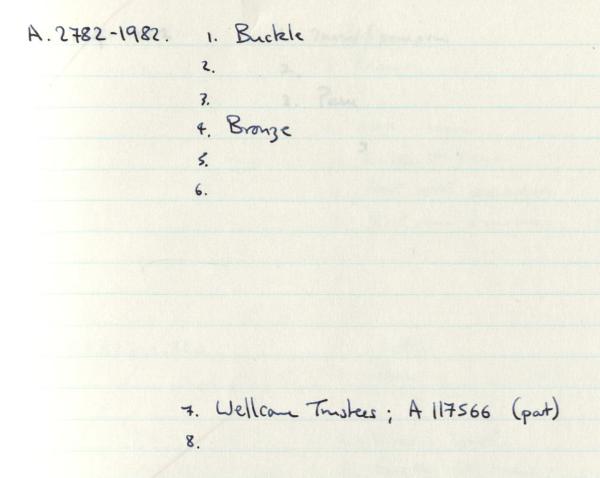 A. 2782-1982. 1. Buckle
2.
3.
4. Bronze
5.
6.
7. Wellcome Trustees ; A 117566 (part)
8.